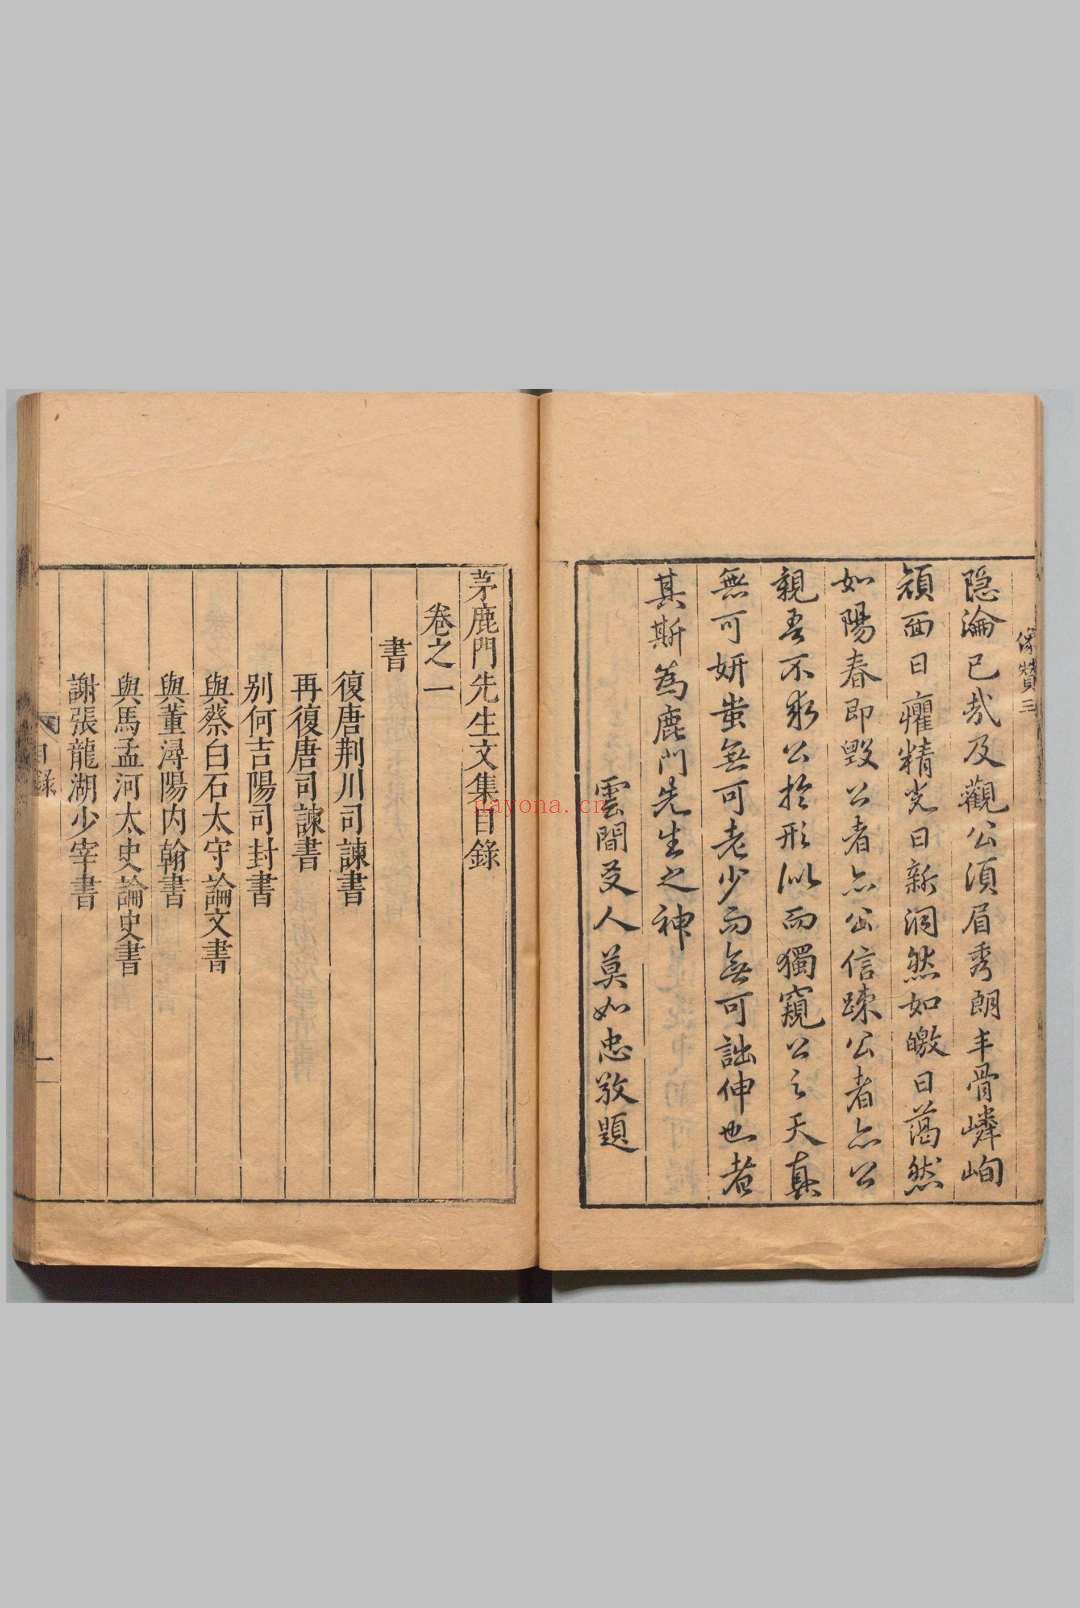 像贊三
隐淪已哉及觀公湏眉秀朗丰骨嶙峋
頎面日癯精光日新洞然如皦日藹然
如陽春即毀公者亦公信踈公者亦公
親吾不求公扵形似而獨窺公之天真
無可妍蚩無可老少而無可詘伸也者
其斯為鹿門先生之神
雲間友人莫如忠敬題
茅鹿門先生文集目錄
卷之一
書
復唐荆川司諫書
再復唐司諫書
别何吉陽司封書
與蔡白石太守論文書
與董潯陽内翰書
與馬孟河太史論史書
謝張龍湖少宰書
目録
一
cayona.cn